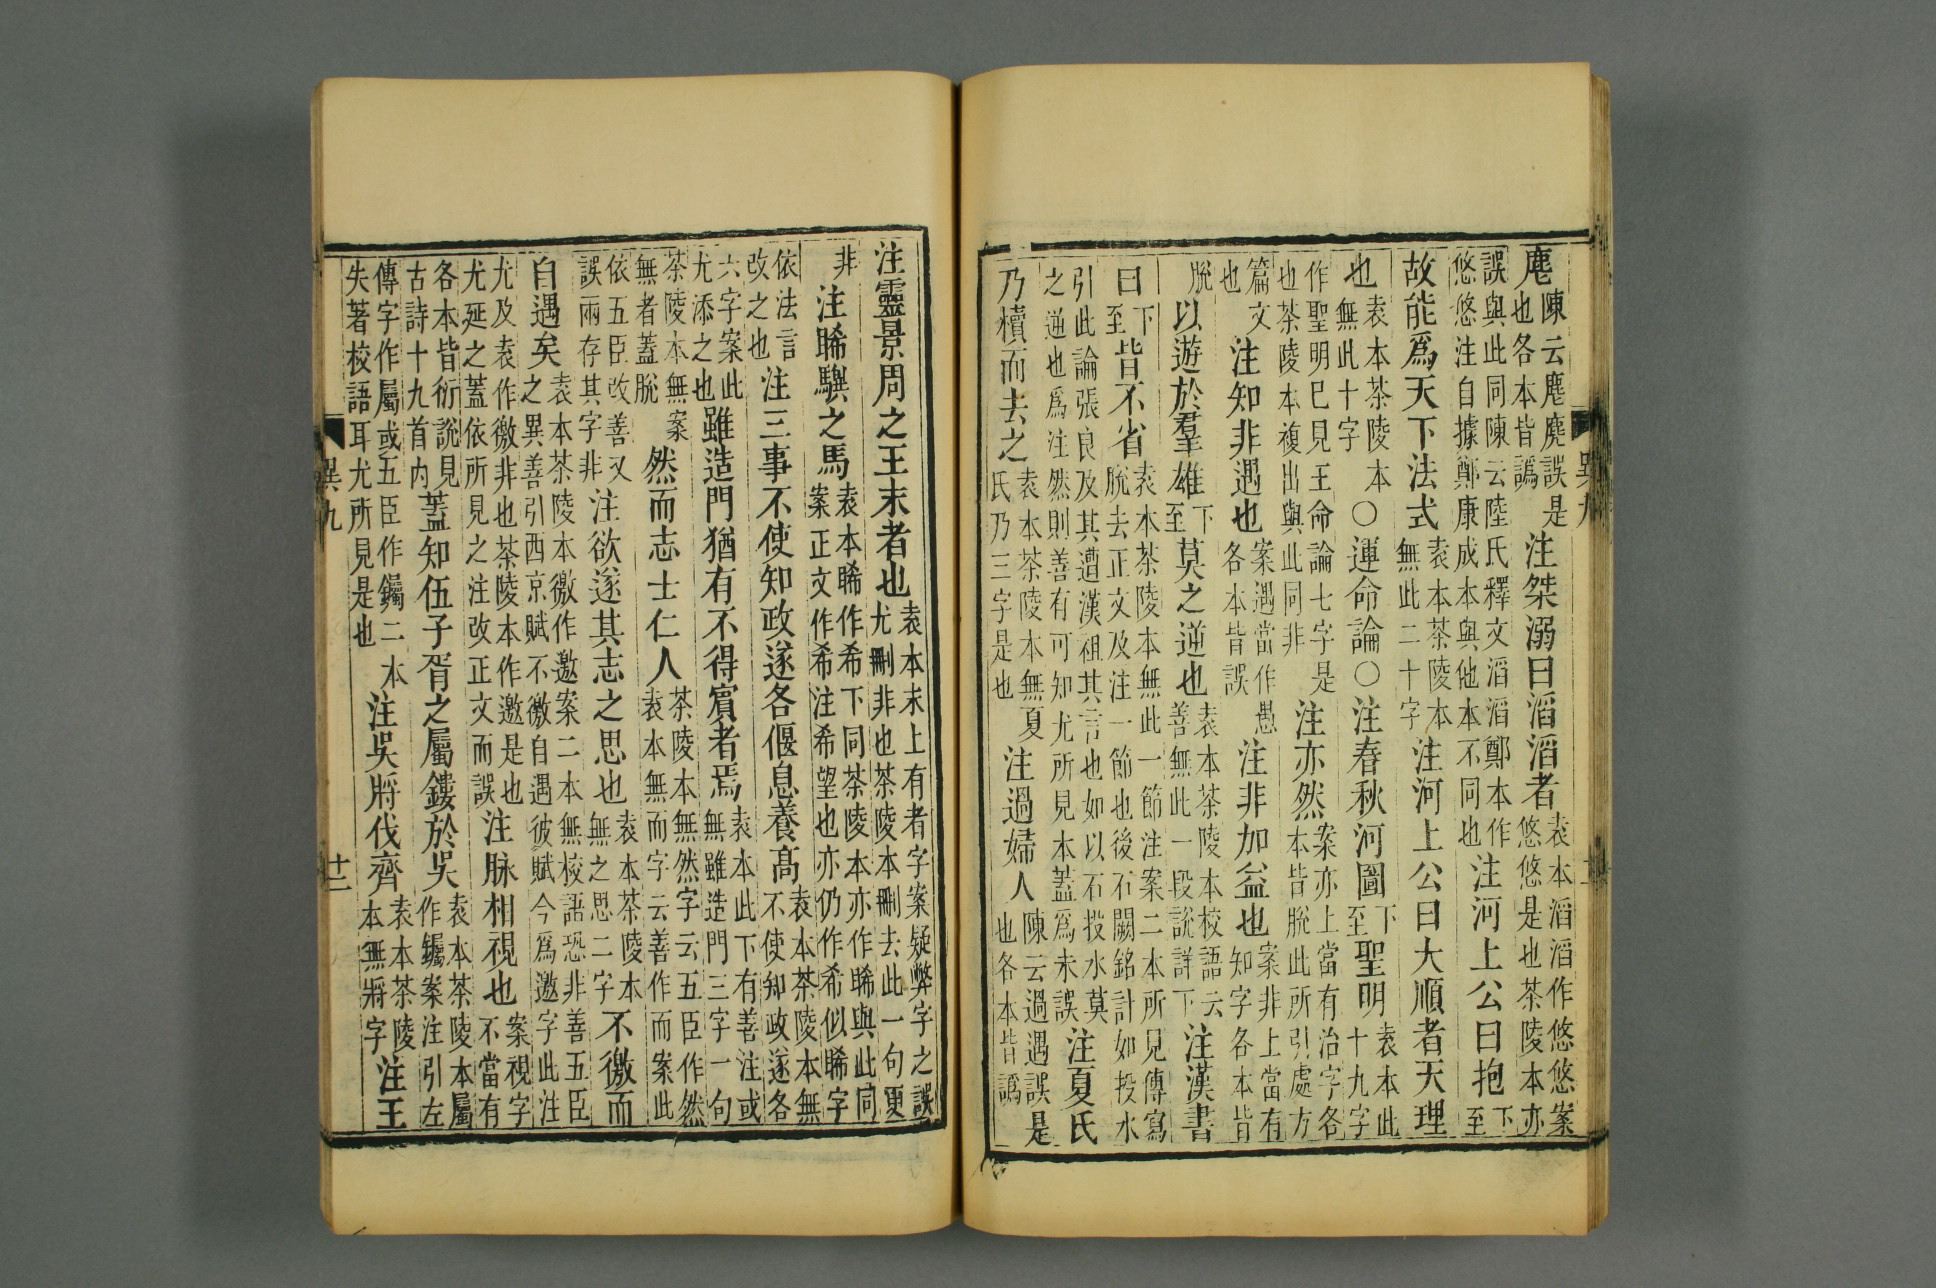 麀陳云麀麃誤是也各本皆譌 注桀溺曰滔滔者袁本滔滔作悠悠案悠悠是也茶陵本亦
誤與此同陳云陸氏釋文滔滔鄭本作悠悠注自據鄭康成本與他本不同也 注河上公曰抱下至
故能爲天下法式袁本茶陵本無此二十字 注河上公曰大順者天理
也袁本茶陵本無此十字 ○運命論○注春秋河圖下至聖明袁本此十九字
作聖明巳見王命論七字是也茶陵本複出與此同非 注亦然案亦上當有治字各本皆脫此所引處方
篇文也 注知非遇也案遇當作愚各本皆誤 注非加益也案非上當有知字各本皆
脫 以遊於羣雄下至莫之逆也袁本茶陵本校語云善無此一段說詳下 注漢書
曰下至皆不省袁本茶陵本無此一節注案二本所見傳寫脫去正文及注一節也後石闕銘計如投水
引此論張良及其遭漢祖其言也如以石投水莫之逆也爲注然則善有可知尤所見本蓋爲未誤 注夏氏
乃櫝而去之袁本茶陵本無夏氏乃三字是也 注過婦人陳云過遇誤是也各本皆譌
異九
注靈景周之王末者也袁本末上有者字案疑弊字之誤尤刪非也茶陵本刪去此一句更
非 注睎驥之馬袁本睎作希下同茶陵本亦作睎與此同案正文作希注希望也亦仍作希似睎字
依法言改之也 注三事不使知政遂各偃息養髙袁本茶陵本無不使知政遂各
六字案此尤添之也 雖造門猶有不得賓者焉袁本此下有善注或無雖造門三字一句
茶陵本無案無者蓋脫 然而志士仁人茶陵本無然字云五臣作然袁本無而字云善作而案此
依五臣改善又誤兩存其字非 注欲遂其志之思也袁本茶陵本無之思二字 不徼而
自遇矣袁本茶陵本徼作邀案二本無校語恐非善五臣之異善引西京賦不徼自遇彼賦今爲邀字此注
尤及袁作徼非也茶陵本作邀是也尤延之蓋依所見之注改正文而誤 注脉相視也案視字不當有
各本皆衍說見古詩十九首内 蓋知伍子胥之屬鏤於吳袁本茶陵本屬作钃案注引左
傳字作屬或五臣作钃二本失著校語耳尤所見是也 注吳將伐齊袁本茶陵本無將字 注王
異九 廿二